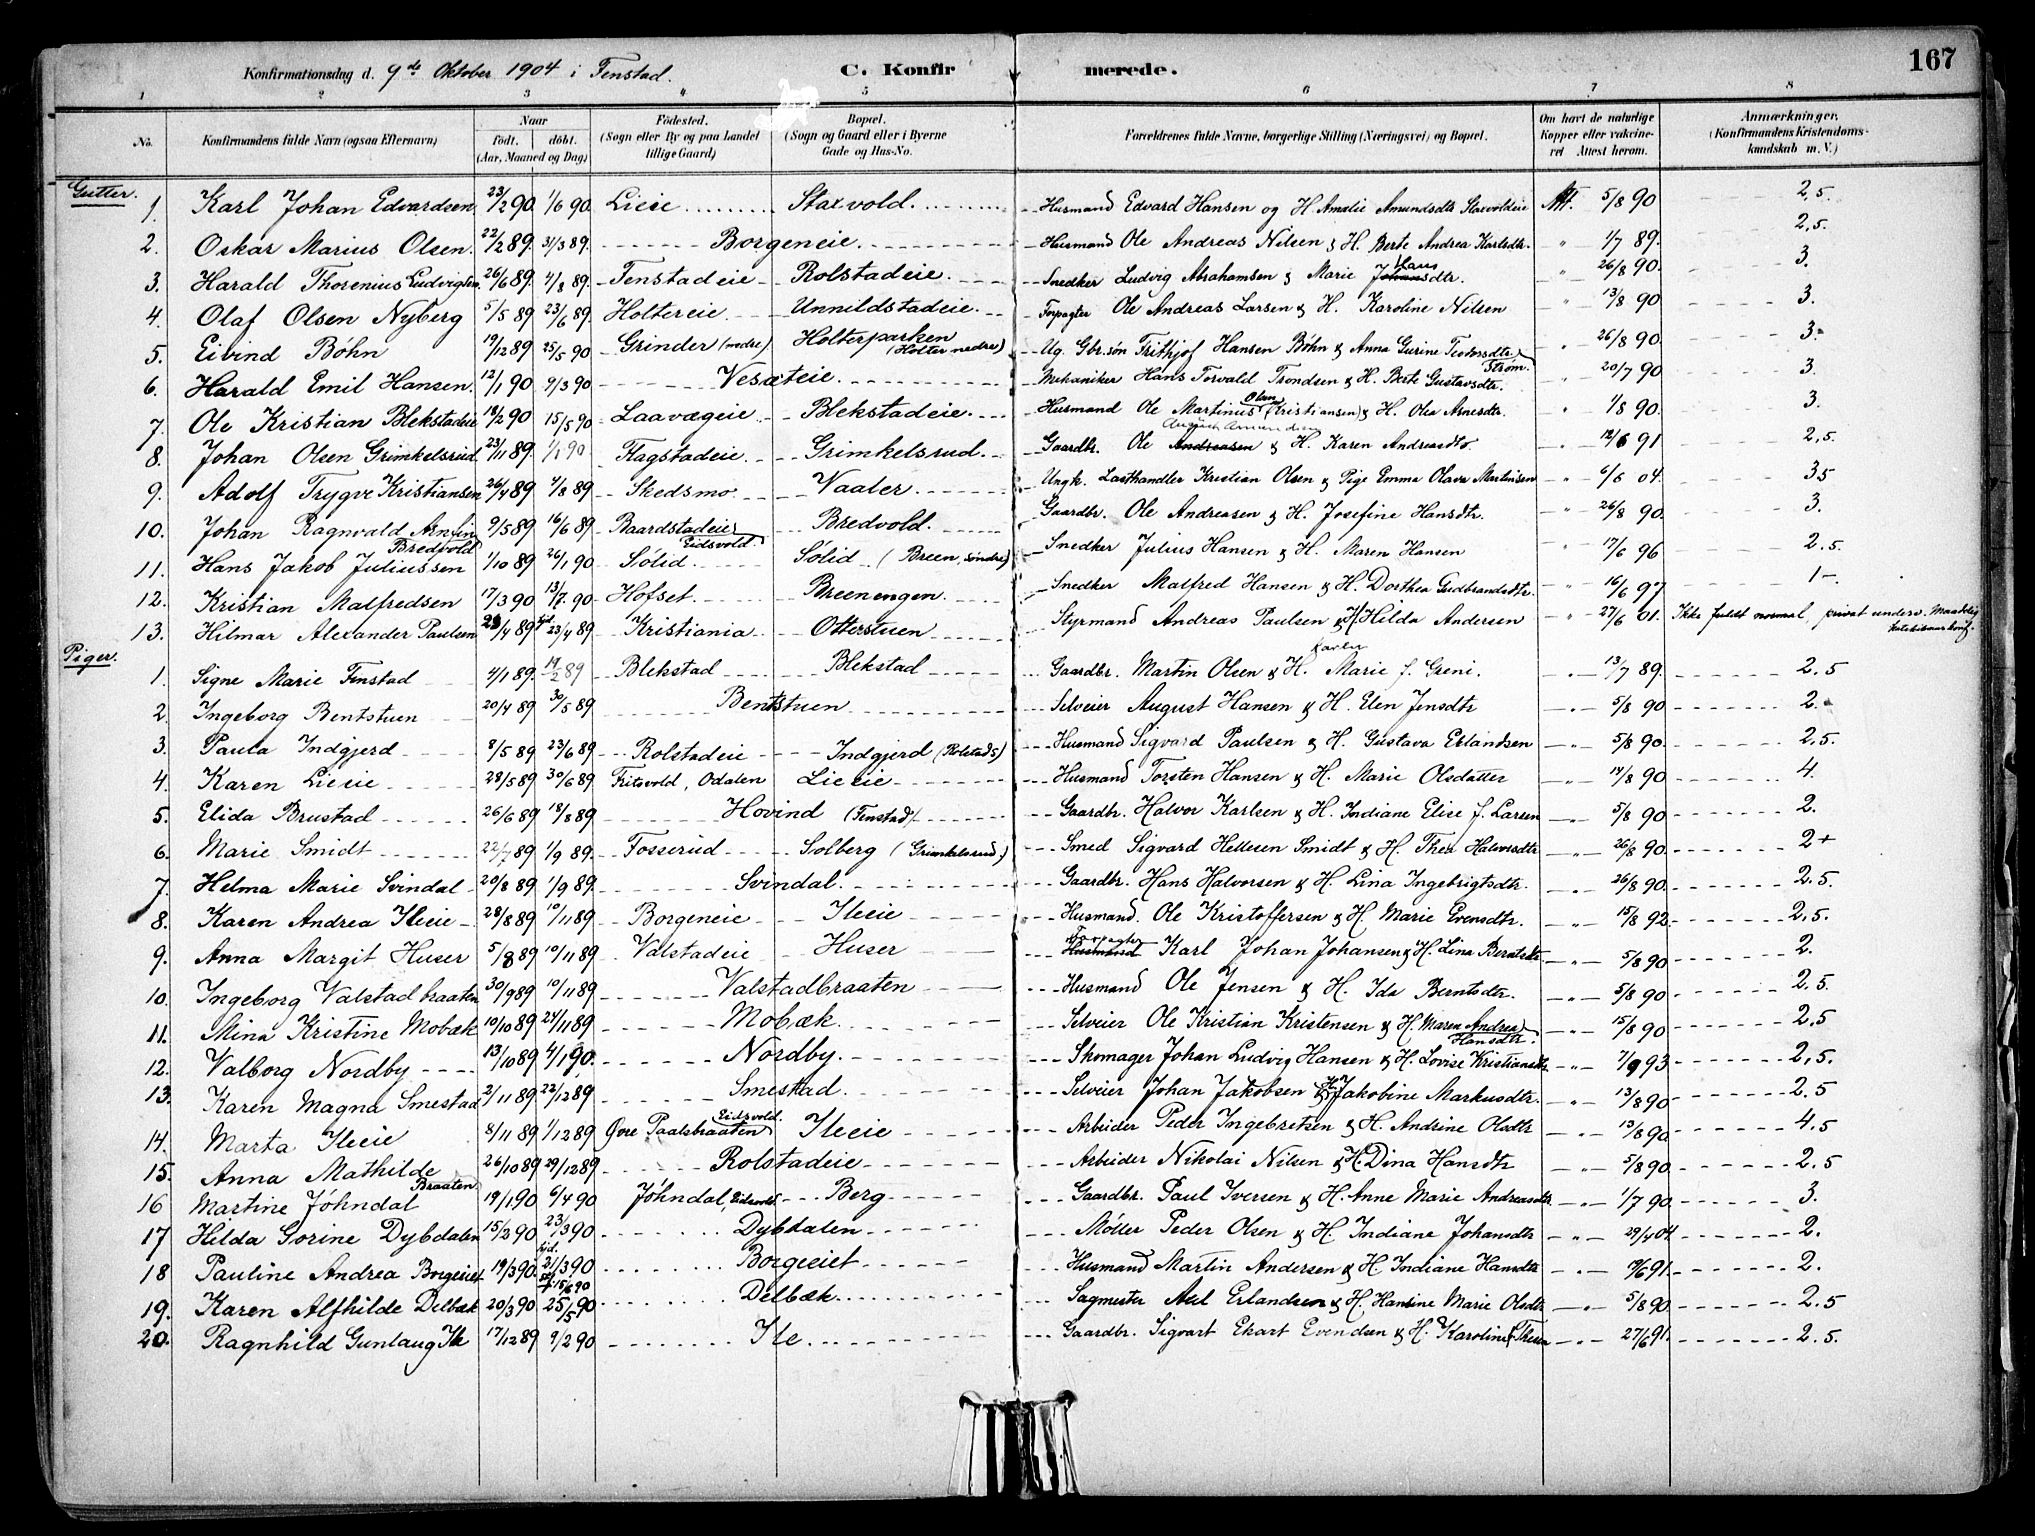 167
Konfirmationsdag d. 9de Oktober 1904 i Fenstad. C. Konfirmerede.
1 2 3 4 5 6 7 8
No. Konfirmandens fulde Navn (ogsaa Efternavn) Naar født. døbt. (Aar, Maaned og Dag) Fødested. (Sogn eller By og paa Landet tillige Gaard) Bopæl. (Sogn og Gaard eller i Byerne Gade og Hus-No. Forældrenes fulde Navne, borgerlige Stilling (Næringsvei) og Bopæl. Om havt de naturlige Kopper eller vaccineret Attest herom. Anmærkninger. (Konfirmandens Kristendomskundskab m. V.)
Gutter.
1. Karl Johan Edvardsen 23/2 90 1/6 90 Lieie Staxvold. Husmand Edvard Hansen og H. Amalie Amundsdtr Staxvoldeie Att. 5/8 90 2,5.
2. Oskar Marius Olsen. 22/2 89. 31/3 89. Borgeneie. Husmand Ole Andreas Nilsen & H. Berte Andrea Karlsdtr. " 1/7 89. 2,5.
3. Harald Thorenius Ludvigsen 26/6 89. 4/8 89. Fenstadeie Rolstadeie. Snedker Ludvig Abrahamsen & Marie Hansdtr. " 26/8 90. 3.
4. Olaf Olsen Nyberg 5/5 89 23/6 89. Holtereie Unnildstadeie. Forpagter Ole Andreas Larsen & H. Karoline Nilsen " 13/8 90 3.
5. Eivind Bøhn 19/12 89 25/5 90 Grinder (nedre) Holterparken (Holter nedre) Ug. Gbr.søn Frithjof Hansen Bøhn & Anna Gurine Teodorsdtr Strøm. " 26/8 90. 3.
6. Harald Emil Hansen. 12/1 90 9/3 90 Vesæteie. Mekaniker Hans Torvald Trondsen & H. Berte Gustavsdtr. " 20/7 90 3.
7. Ole Kristian Blekstadeie 18/2 90 15/5 90 Laavægeie Blekstadeie. Husmand Ole Martinius Olsen (Kristiansen) & H. Olea Arnesdtr. " 1/8 90. 3.
8. Johan Olsen Grimkelsrud 23/11 89. 1/1 90 Flagstadeie. Grimkelsrud. Gaardbr. Ole Andreasen August Amundsen & H. Karen Andreasdtr " 12/6 91 2,5.
9. Adolf Trygve Kristiansen 26/4 89 4/8 89. Skedsmo Vaaler. Ungk. Lasthandler Kristian Olsen & Pige Emma Olava Martinsen " 6/6 04. 3 5
10. Johan Ragnvald Arnfin Bredvold 9/5 89 16/6 89. Baardstadeie Eidsvold. Bredvold. Gaardbr. Ole Andreasen & H. Josefine Hansdtr. " 26/8 90. 3.
11. Hans Jakob Juliussen 1/10 89 26/1 90 Sølid Sølid (Breen, søndre) Snedker Julius Hansen & H. Maren Hansen " 17/6 96 2.5.
12. Kristian Malfredsen 17/3 90 13/7 90 Hofset. Breenengen. Snedker Malfred Hansen & H. Dorthea Gudbrandsdtr. " 16/6 97 1-.
13. Hilmar Alexander Paulsen 23/4 89 hjd. 23/4 89. Kristiania Otterstuen Styrmand Andreas Paulsen & H. Hilda Andersen " 27/6 01. Ikke fuldt normal, privat underv.
Piger.
1. Signe Marie Fenstad 4/1 89. 17/2 89 Blekstad Blekstad Gaardbr. Martin Olsen & H. Karen Marie f. Greni. " 13/7 89. 2,5
2. Ingeborg Bentstuen 20/4 89 30/5 89 Bentstuen Selveier August Hansen & H. Elen Jensdtr " 5/8 90 2.
3. Paula Indgjerd 8/5 89 23/6 89. Rolstadeie Indgjerd (Rolstads) Husmand Sigvard Paulsen & H. Gustava Erlandsen " 5/8 90. 2,5.
4. Karen Lieeie 28/5 89 30/6 89. Fritsvold, Odalen Lieeie Husmand Torsten Hansen & H. Marie Olsdatter " 14/8 90 4.
5. Elida Brustad 26/6 89 18/8 89 Hovind (Fenstad) Gaardbr. Halvor Karlsen & H. Indiane Elise f. Larsen " 5/8 90 2.
6. Marie Smidt 22/7 89 1/9 89. Fosserud Solberg (Grimkelsrud.) Smed Sigvard Hellesen Smidt & H. Thea Halvorsdtr " 26/8 90. 2+
7. Helma Marie Svindal 20/8 89 1/9 89. Svindal. Gaardbr. Hans Halvorsen & H. Lina Ingebrigtsdtr. " 26/8 90. 2.5.
8. Karen Andrea Ileeie 28/8 89 10/11 89 Borgeneie Ileeie Husmand. Ole Kristoffersen & H. Marie Evensdtr. " 15/8 92. 2,5.
9. Anna Margit Huser 5/8 89 10/11 89 Valstadeie Huser Husmand Forpagter Karl Johan Johansen & H. Lina Berntsdtr " 5/8 90 2.
10. Ingeborg Valstadbraaten 30/9 89 10/11 89 Valstadbraaten Husmand Ole Jensen & H. Ida Berntsdtr. " 5/8 90 2.5.
11. Mina Kristine Mobæk 10/10 89 24/11 89. Mobæk. Selveier Ole Kristian Kristensen & H. Maren Andrea Hansdtr. " 15/8 90 2,5
12. Valborg Nordby 13/10 89 4/1 90. Nordby. Skomager Johan Ludvig Hansen & H. Lovise Kristiansdtr. " 7/9 93 2,5.
13. Karen Magna Smestad 2/11 89 22/12 89. Smestad Selveier Johan Jakobsen & H. Jakobine Markusdtr. " 13/8 90 2 5
14. Marta Ileeie 8/11 89 1/12 89 Øvre Paalsbraaten Eidsvold. Ileeie Arbeider Peder Ingebretsen & H. Andrine Olsdtr " 13/8 90 4.5
15. Anna Mathilde Braaten 26/10 89 29/12 89. Rolstadeie Arbeider Nikolai Nilsen & H. Dina Hansdtr " 5/8 90. 2.5
16 Martine Jøhndal 19/1 90 6/4 90 Jøhndal, Eidsvold Berg Gaardbr. Paul Iversen & H. Anne Marie Andreasdtr " 1/7 90. 3.
17 Hilda Sorine Dybdalen 15/2 90 23/3 90 Dybdalen Møller Peder Olsen & H. Indiane Johansdtr " 29/4 04. 2.
18 Pauline Andrea Borgeiet 19/3 90. hjd. 21/3 90 15/6 90 Borgeiet Husmand Martin Andersen & H. Indiane Hansdtr " 19/6 91. 2.
19. Karen Alfhilde Delbæk 20/3 90 25/5 90 Delbæk Sagmester Aul Erlandsen & H. Hansine Marie Olsdtr " 5/8 90. 2.5
20. Ragnhild Gunlaug Ile 17/12 89 9/2 90 Ile Gaardbr. Sigvart Ekart Evendsen & H. Karoline f. Thesen " 27/6 91. 2.5.